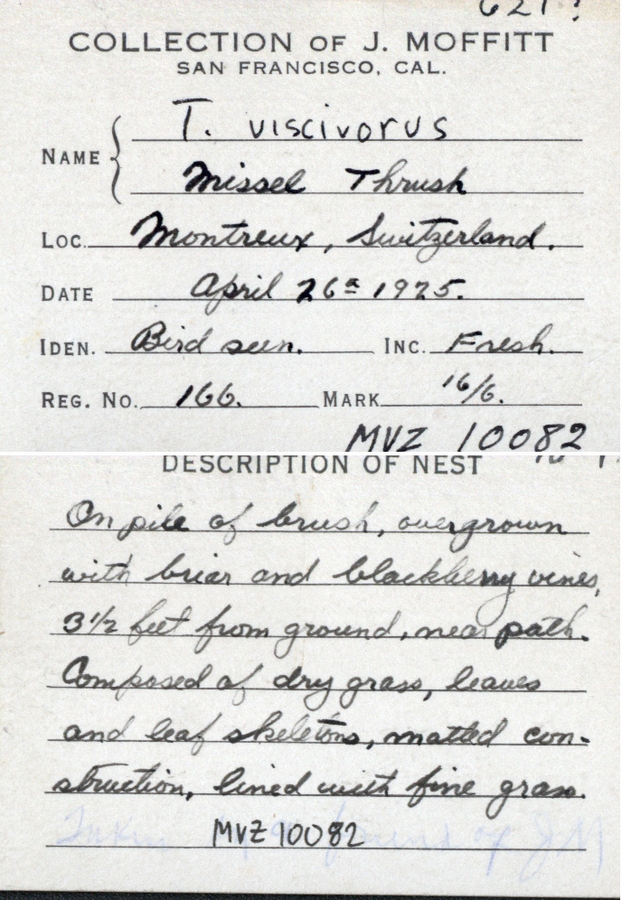 621?
COLLECTION OF J. MOFFITT
SAN FRANCISCO, CAL.
NAME
T. viscivorus
Missel Thrush
LOC. Montreux, Switzerland.
DATE April 26th 1925.
IDEN. Bird seen. INC. Fresh.
REG. NO. 166. MARK 16/6.
MVZ 10082
DESCRIPTION OF NEST
On pile of brush, overgrown
with briar and blackberry vines,
3 1/2 feet from ground, near path.
Composed of dry grass, leaves
and leaf skeletons, matted con-
struction, lined with fine grass.
Taken by a friend of JM
MVZ 10082